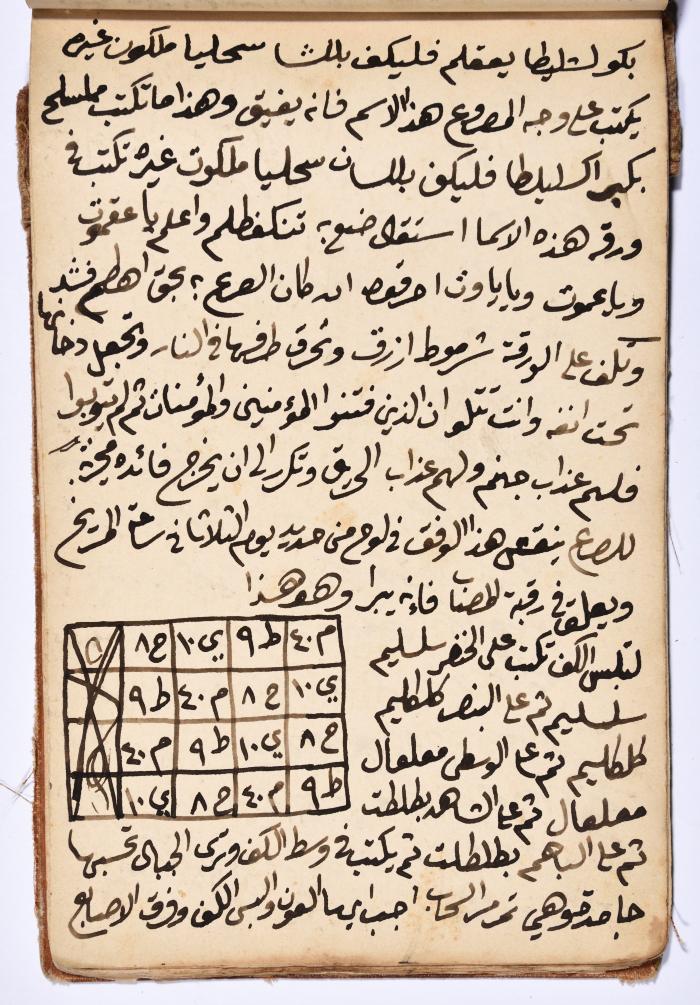 يعقلم فليكف سحليا ملكون غيره
يكتب على وجه المصروع هذا الاسم فانه يفيق وهذا ما تكتب
فليكف سحليا ملكوت غيره تكتب في
ورقه هذه الاسما واعلم يا
ان كان الصرع بحق
وتلف على الورقة شرموط ازرق وتحرق طرفها في النار وتجعل دخانها
تحت انفه وانت تتلو ان الذين فتنوا المؤمنين والمؤمنات ثم لم يتوبوا
فلهم عذاب جهنم ولهم عذاب الحريق وتكرر الى ان يخرج فائده مجربه
للصرع ينقش هذا الوفق في لوح من حديد يوم الثلاثا في ساعة المريخ
ويعلق في رقبة المصاب فانه يبرا وهو هذا
م٤٠ ط٩ ي١٠ ح٨
ي١٠ ح٨ م٤٠ ط٩
ح٨ ي١٠ ط٩ م٤٠
ط٩ م٤٠ ح٨ ي١٠
لتلبس الكف تكتب على الخنصر سلسليم
سلسليم ثم على البنصر كلكليم
كلكليم ثم على الوسطى معلعال
معلعال ثم على الشاهد بطلطلت
ثم على الباهم بطلطلت ثم يكتب في وسط الكف وترى الجبال تحسبها
جامدة وهي تمر مر السحاب اجب ايها العون والبس الكف وفرق الاصابع